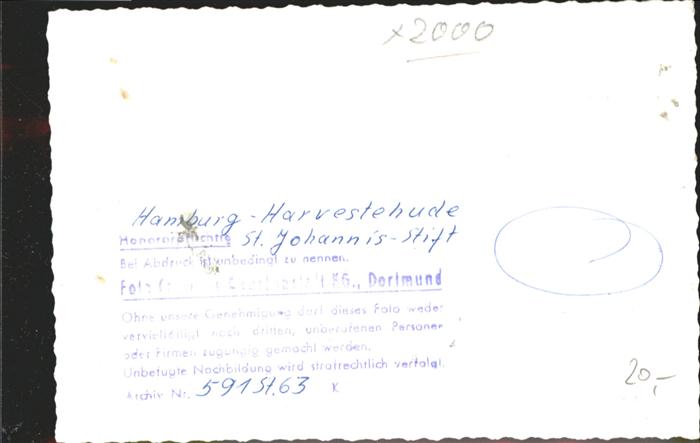 x2000
Hamburg-Harvestehude
Honorarpflichtig St. Johannis-Stift
Bei Abdruck ist unbedingt zu nennen.
Foto KG., Dortmund
Ohne unsere Genehmigung darf dieses Foto weder
vervielfältigt noch dritten, unberufenen Personen
oder Firmen zugängig gemacht werden.
Unbefugte Nachbildung wird strafrechtlich verfolgt.
Archiv Nr. 591St.63 K
20,-